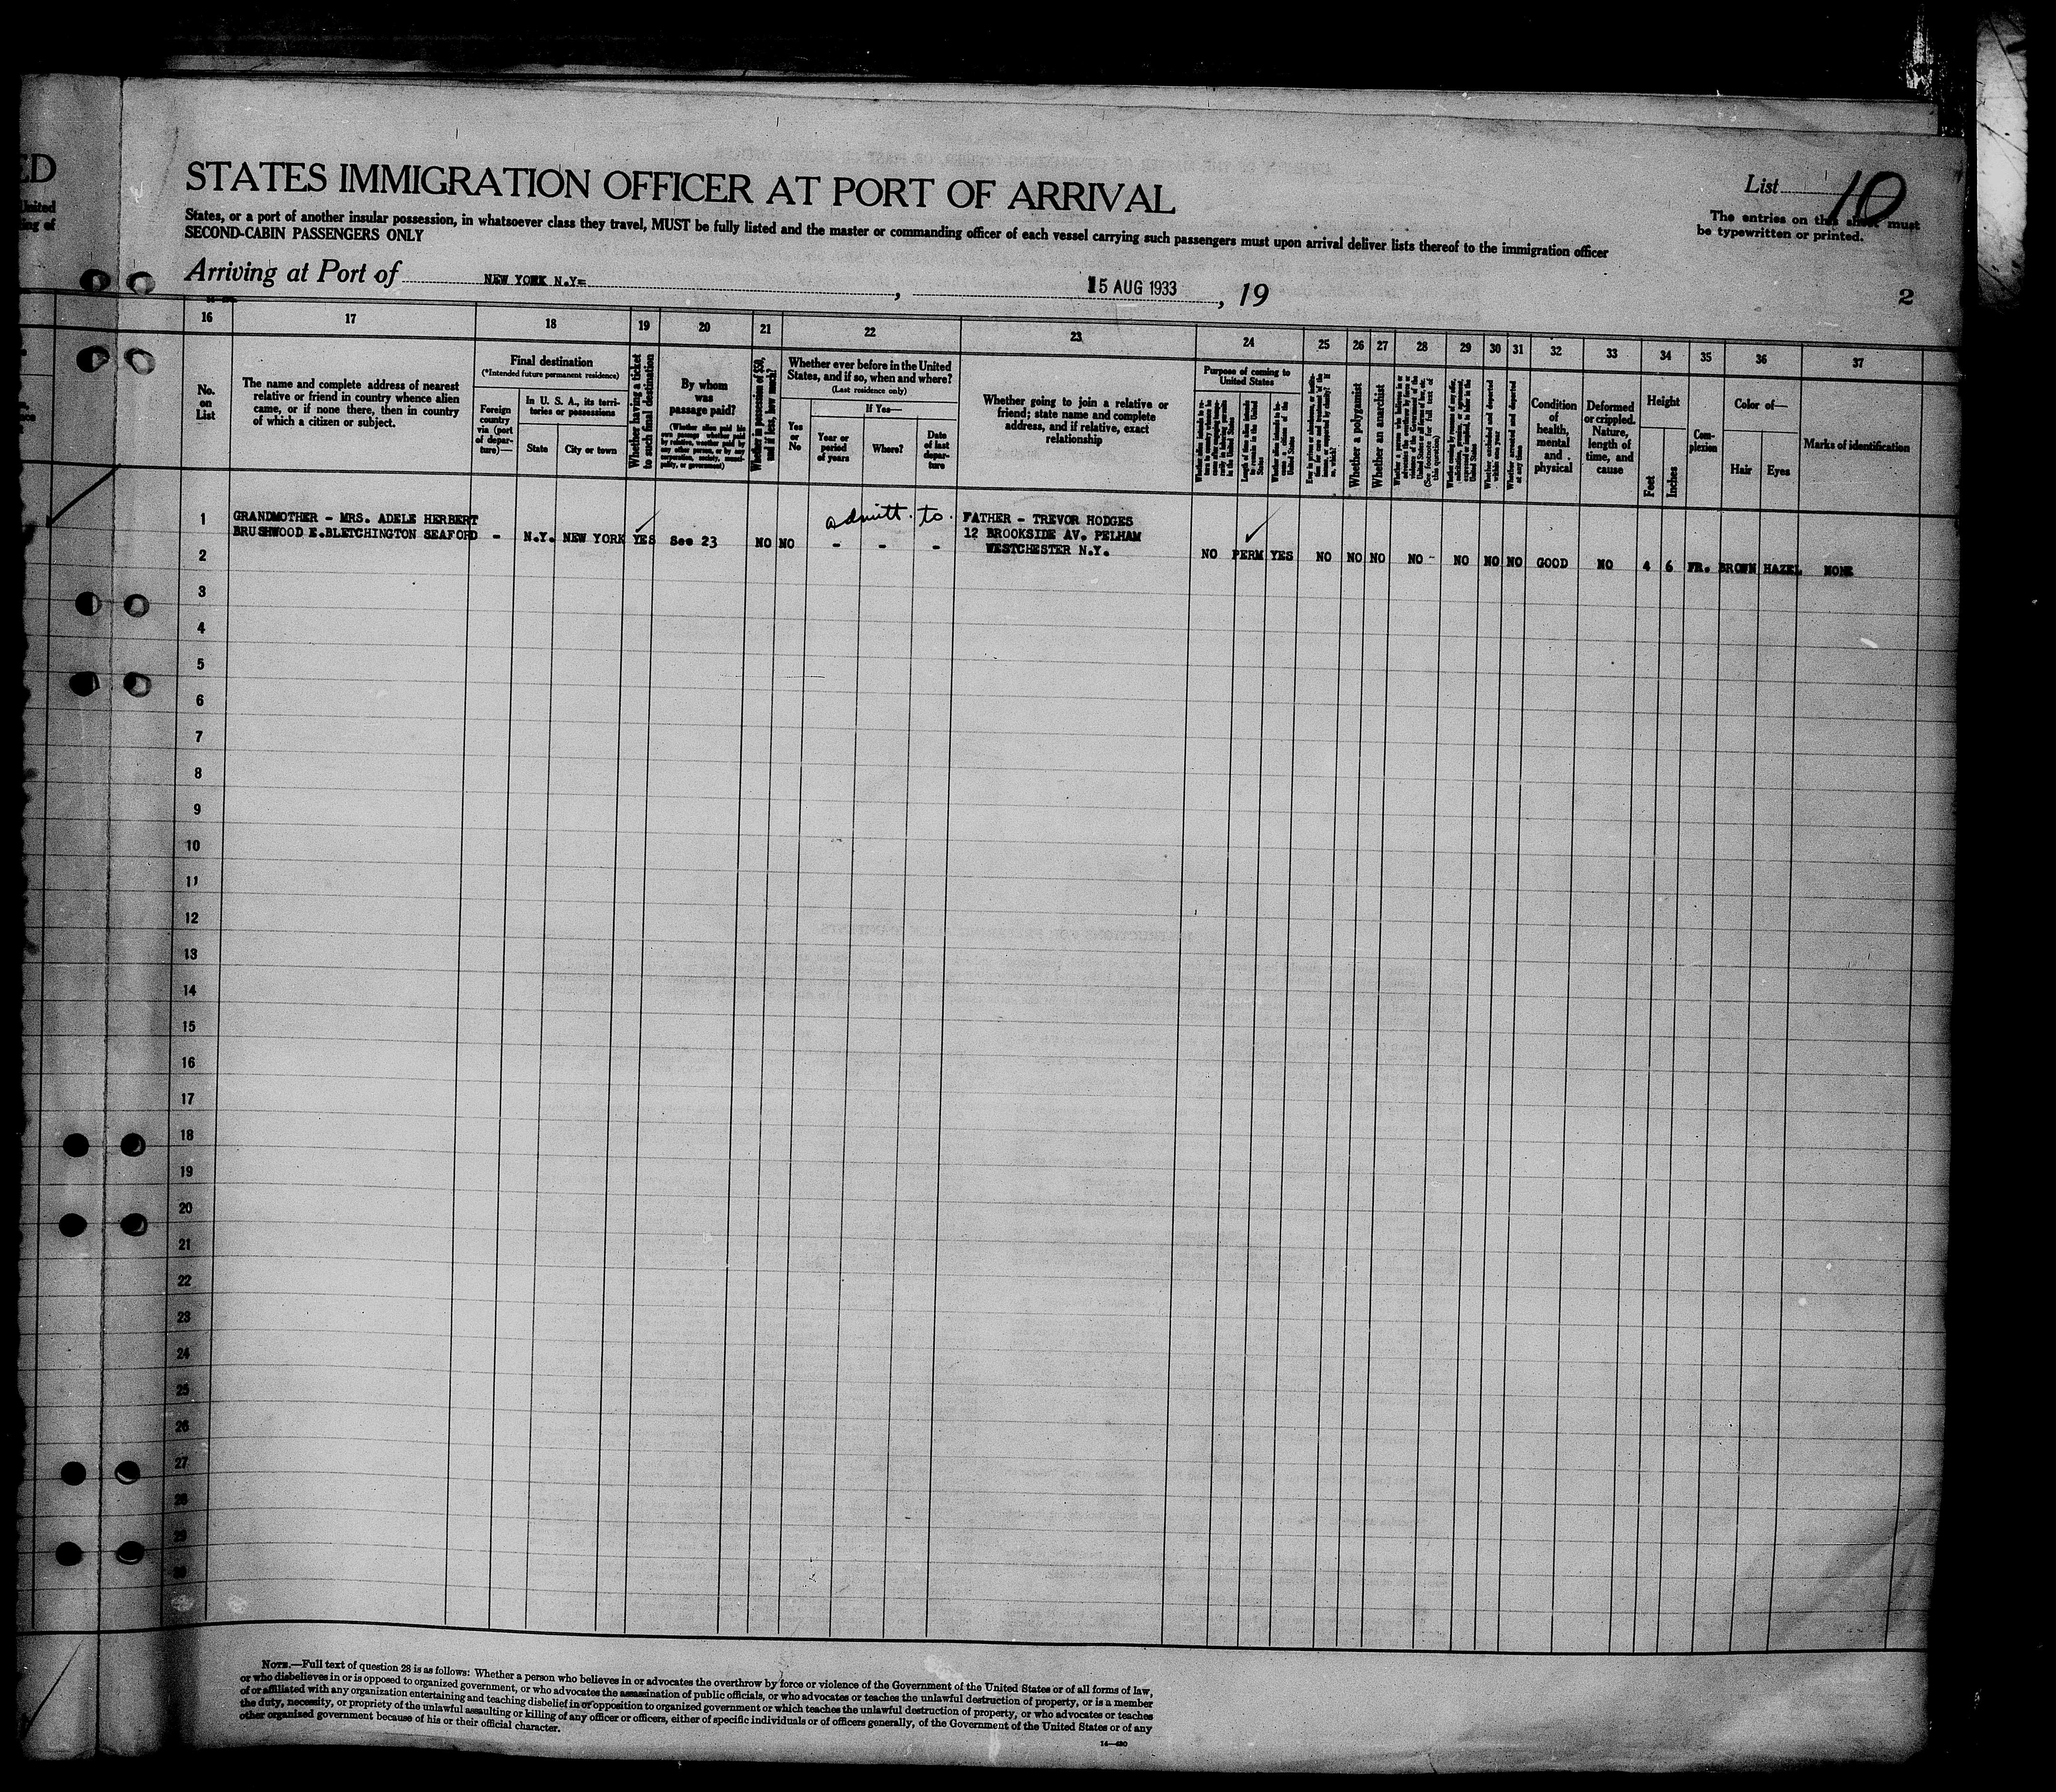 ED
STATES IMMIGRATION OFFICER AT PORT OF ARRIVAL
List 10
United
States, or a port of another insular possession, in whatsoever class they travel, MUST be fully listed and the master or commanding officer of each vessel carrying such passengers must upon arrival deliver lists thereof to the immigration officer
SECOND-CABIN PASSENGERS ONLY
The entries on this sheet must
be typewritten or printed.
Arriving at Port of NEW YORK N.Y= , 15 AUG 1933 , 19
2
16 17 18 19 20 21 22 23 24 25 26 27 28 29 30 31 32 33 34 35 36 37
No.
on
List
The name and complete address of nearest
relative or friend in country whence alien
came, or if none there, then in country
of which a citizen or subject.
Final destination
(*Intended future permanent residence)
Foreign
country
via (port
of depar-
ture)—
In U. S. A., its terri-
tories or possessions
State
City or town
Whether having a ticket
to such final destination
By whom
was
passage paid?
(Whether alien paid his
own passage, whether paid
by relative, whether paid by
any other person, or by any
corporation, society, munici-
pality, or government)
Whether in possession of $50,
and if less, how much?
Whether ever before in the United
States, and if so, when and where?
(Last residence only)
Yes
or
No
If Yes—
Year or
period
of years
Where?
Date
of last
depar-
ture
Whether going to join a relative or
friend; state name and complete
address, and if relative, exact
relationship
Purpose of coming to
United States
Length of time alien intends
to remain in the United
States
Whether a polygamist
Whether an anarchist
(See footnote for full text of
this question)
Whether arrested and deported
at any time
Condition
of
health,
mental
and
physical
Deformed
or crippled.
Nature,
length of
time, and
cause
Height
Feet
Inches
Com-
plexion
Color of—
Hair
Eyes
Marks of identification
admitt. to.
1 GRANDMOTHER - MRS. ADELE HERBERT FATHER - TREVOR HODGES
BRUSHWOOD E.BLETCHINGTON SEAFORD - N.Y. NEW YORK YES See 23 NO NO - - - 12 BROOKSIDE AV. PELHAM
WESTCHESTER N.Y. NO PERM YES NO NO NO NO - NO NO NO GOOD NO 4 6 FR. BROWN HAZEL NONE
2
3
4
5
6
7
8
9
10
11
12
13
14
15
16
17
18
19
20
21
22
23
24
25
26
27
28
29
30
NOTE.—Full text of question 28 is as follows: Whether a person who believes in or advocates the overthrow by force or violence of the Government of the United States or of all forms of law,
or who disbelieves in or is opposed to organized government, or who advocates the assassination of public officials, or who advocates or teaches the unlawful destruction of property, or is a member
of or affiliated with any organization entertaining and teaching disbelief in or opposition to organized government or which teaches the unlawful destruction of property, or who advocates or teaches
the duty, necessity, or propriety of the unlawful assaulting or killing of any officer or officers, either of specific individuals or of officers generally, of the Government of the United States or of any
other organized government because of his or their official character.
14—430